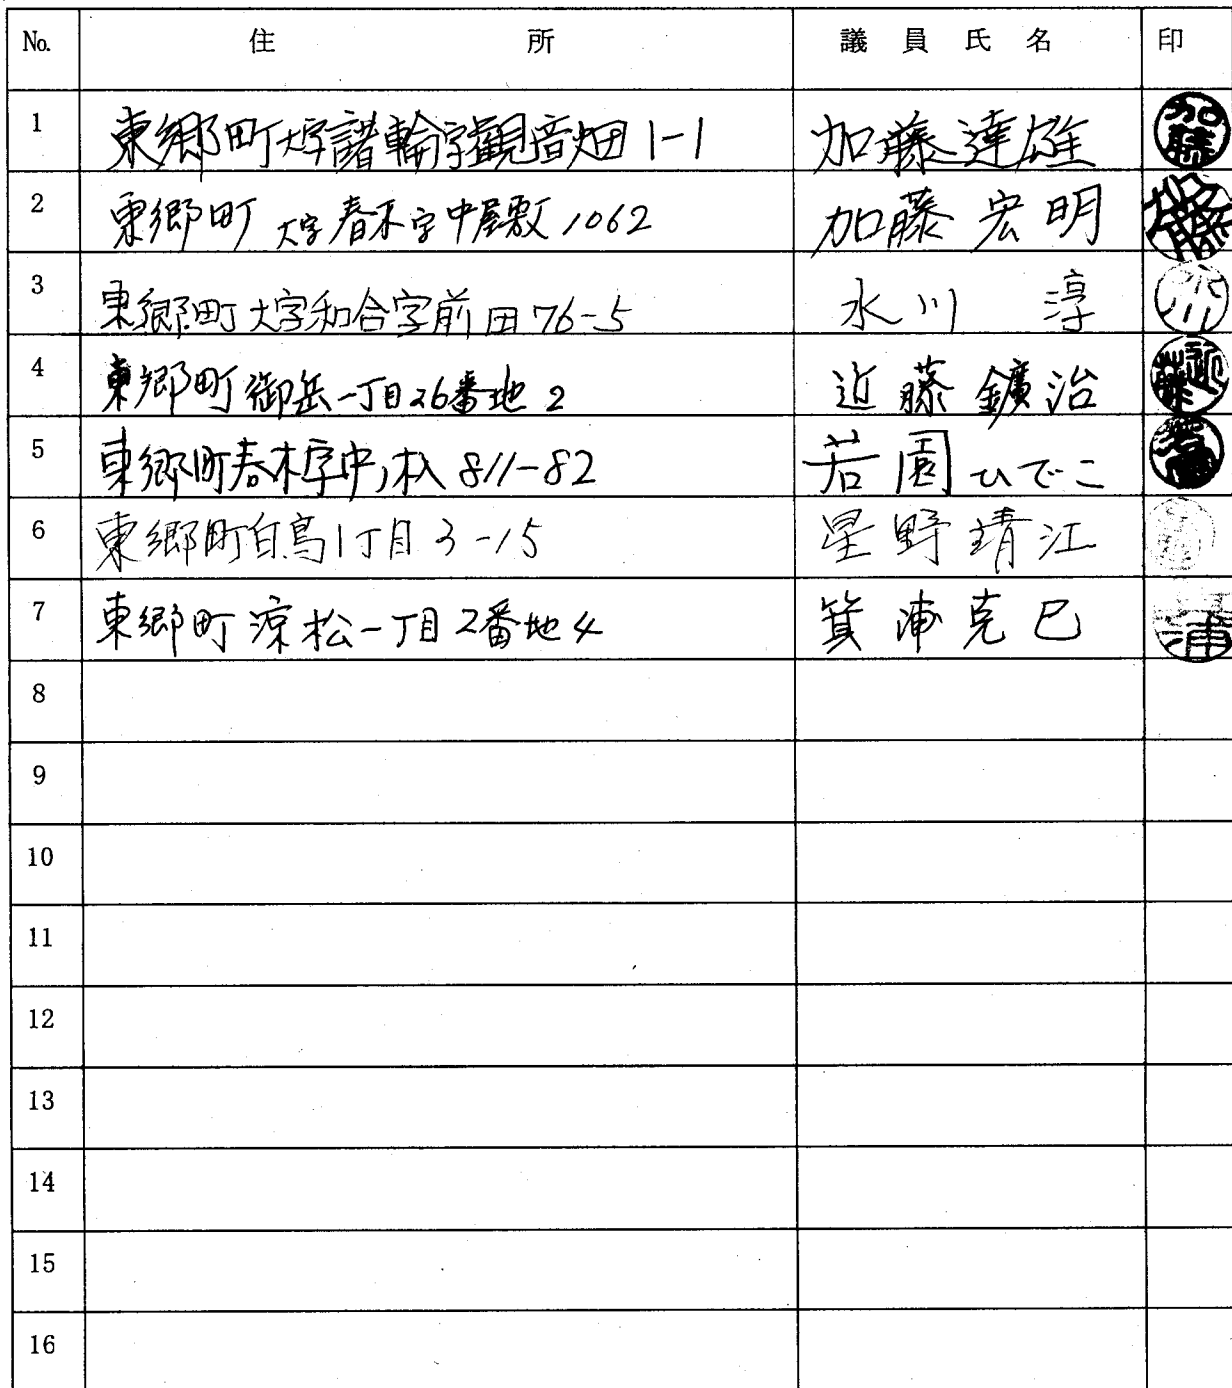 No. 住所 議員氏名 印
1 東郷町大字諸輪字観音畑1-1 加藤達雄 加藤
2 東郷町大字春木字中屋敷1062 加藤宏明 加藤
3 東郷町大字和合字前田76-5 水川淳 水川
4 東郷町御岳一丁目26番地2 近藤鑛治 近藤
5 東郷町春木字中小杁811-82 若園ひでこ 若園
6 東郷町白鳥1丁目3-15 星野靖江
7 東郷町涼松一丁目2番地4 箕浦克巳 浦
8
9
10
11
12
13
14
15
16